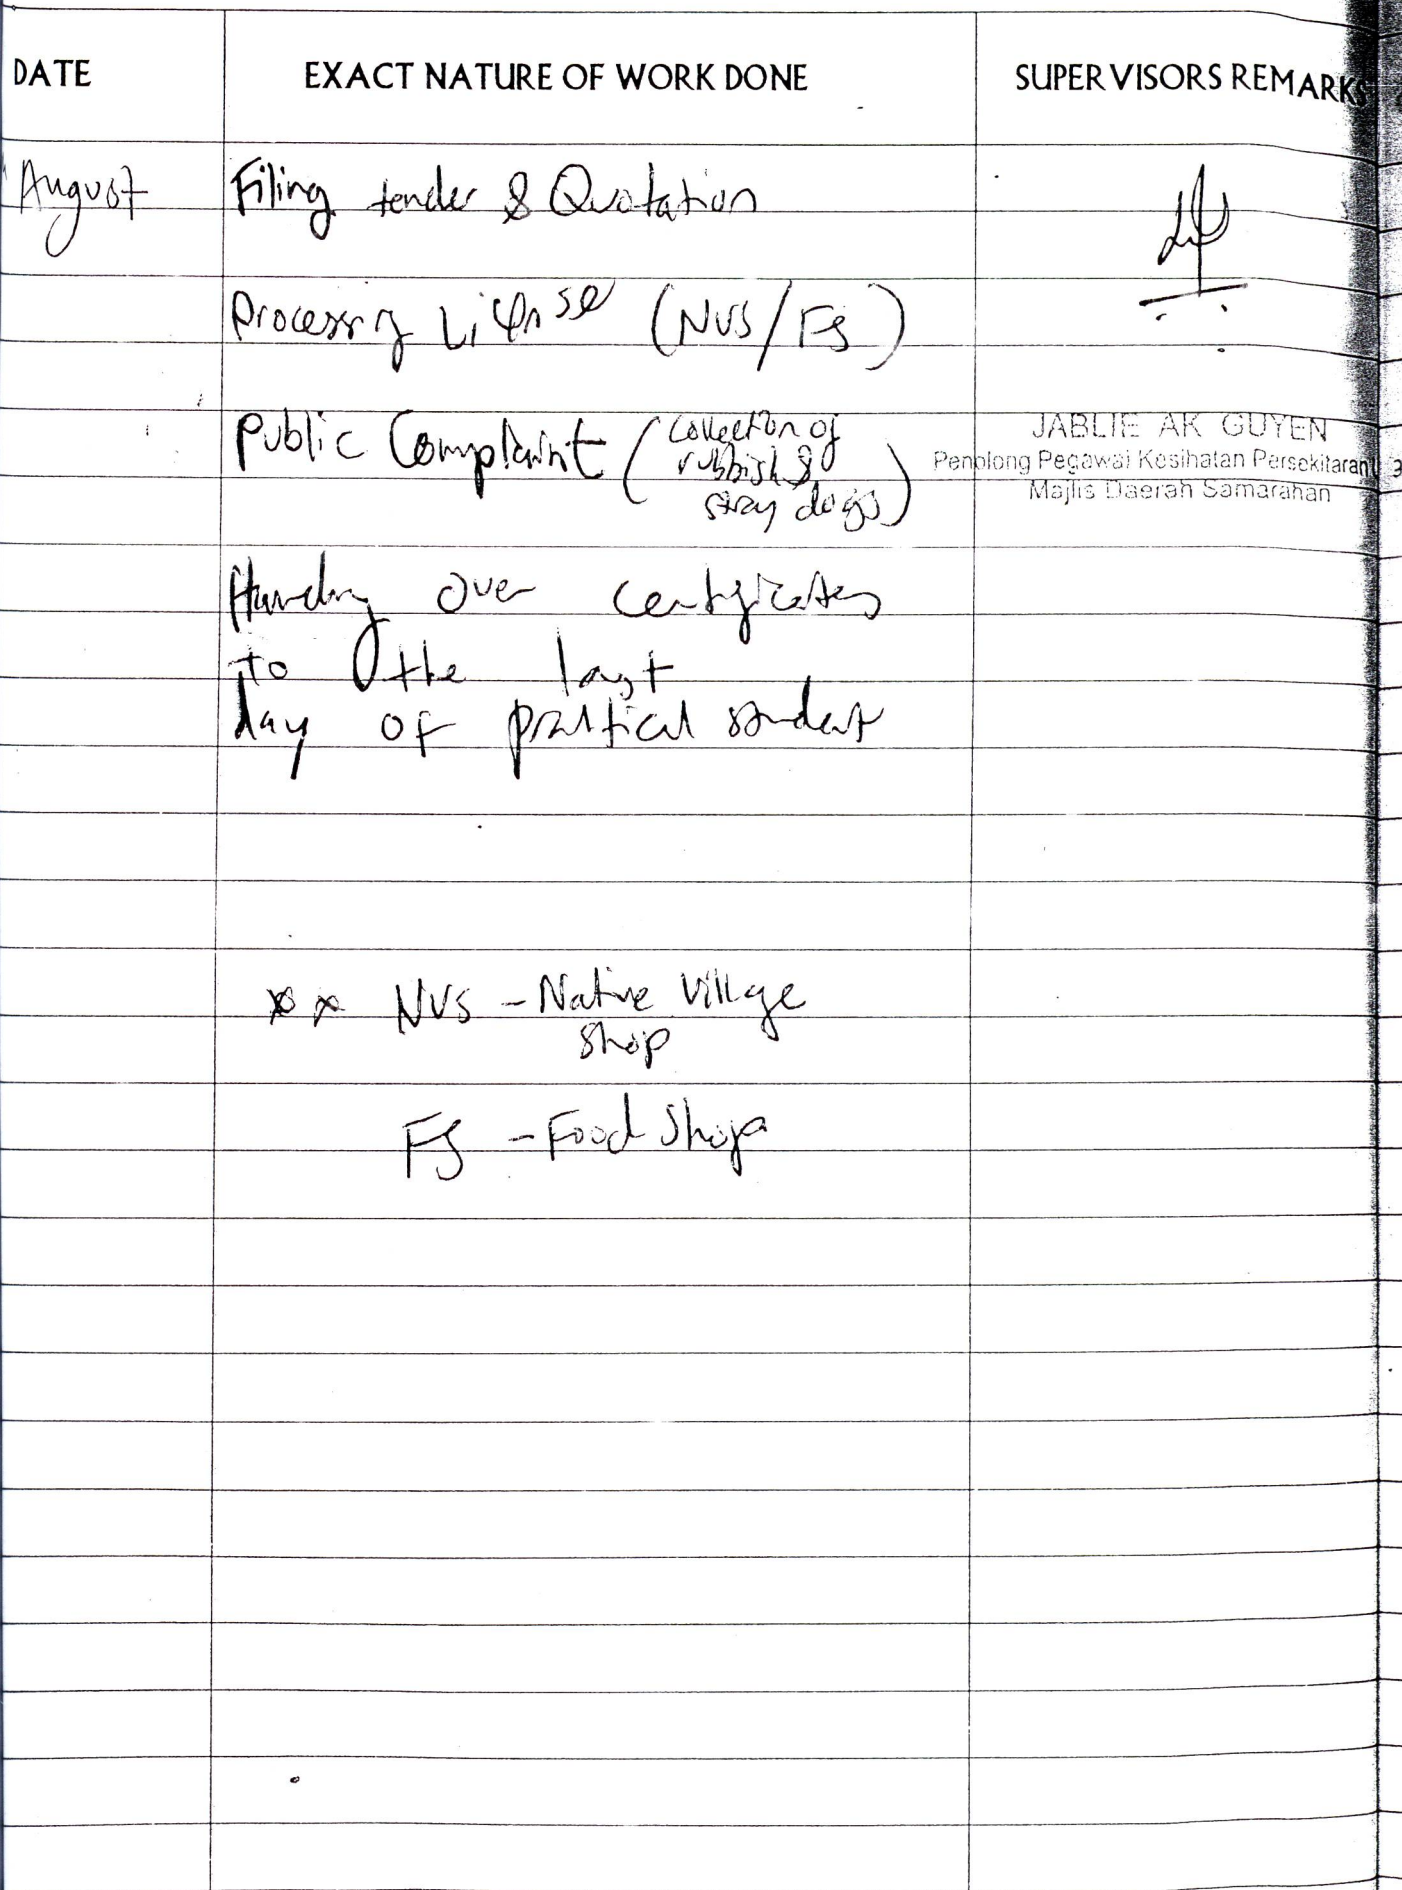 DATE EXACT NATURE OF WORK DONE SUPERVISORS REMARKS
August Filing tender & Quotation
Processing License (NVS/FS)
Public Complaint (collection of
rubbish &
stray dogs)
JABLIE AK GUYEN
Penolong Pegawai Kesihatan Persekitaran U 3
Majlis Daerah Samarahan
Handing over certificates
to the last
day of pratical student
** NVS - Native Village
Shop
FS - Food Shop